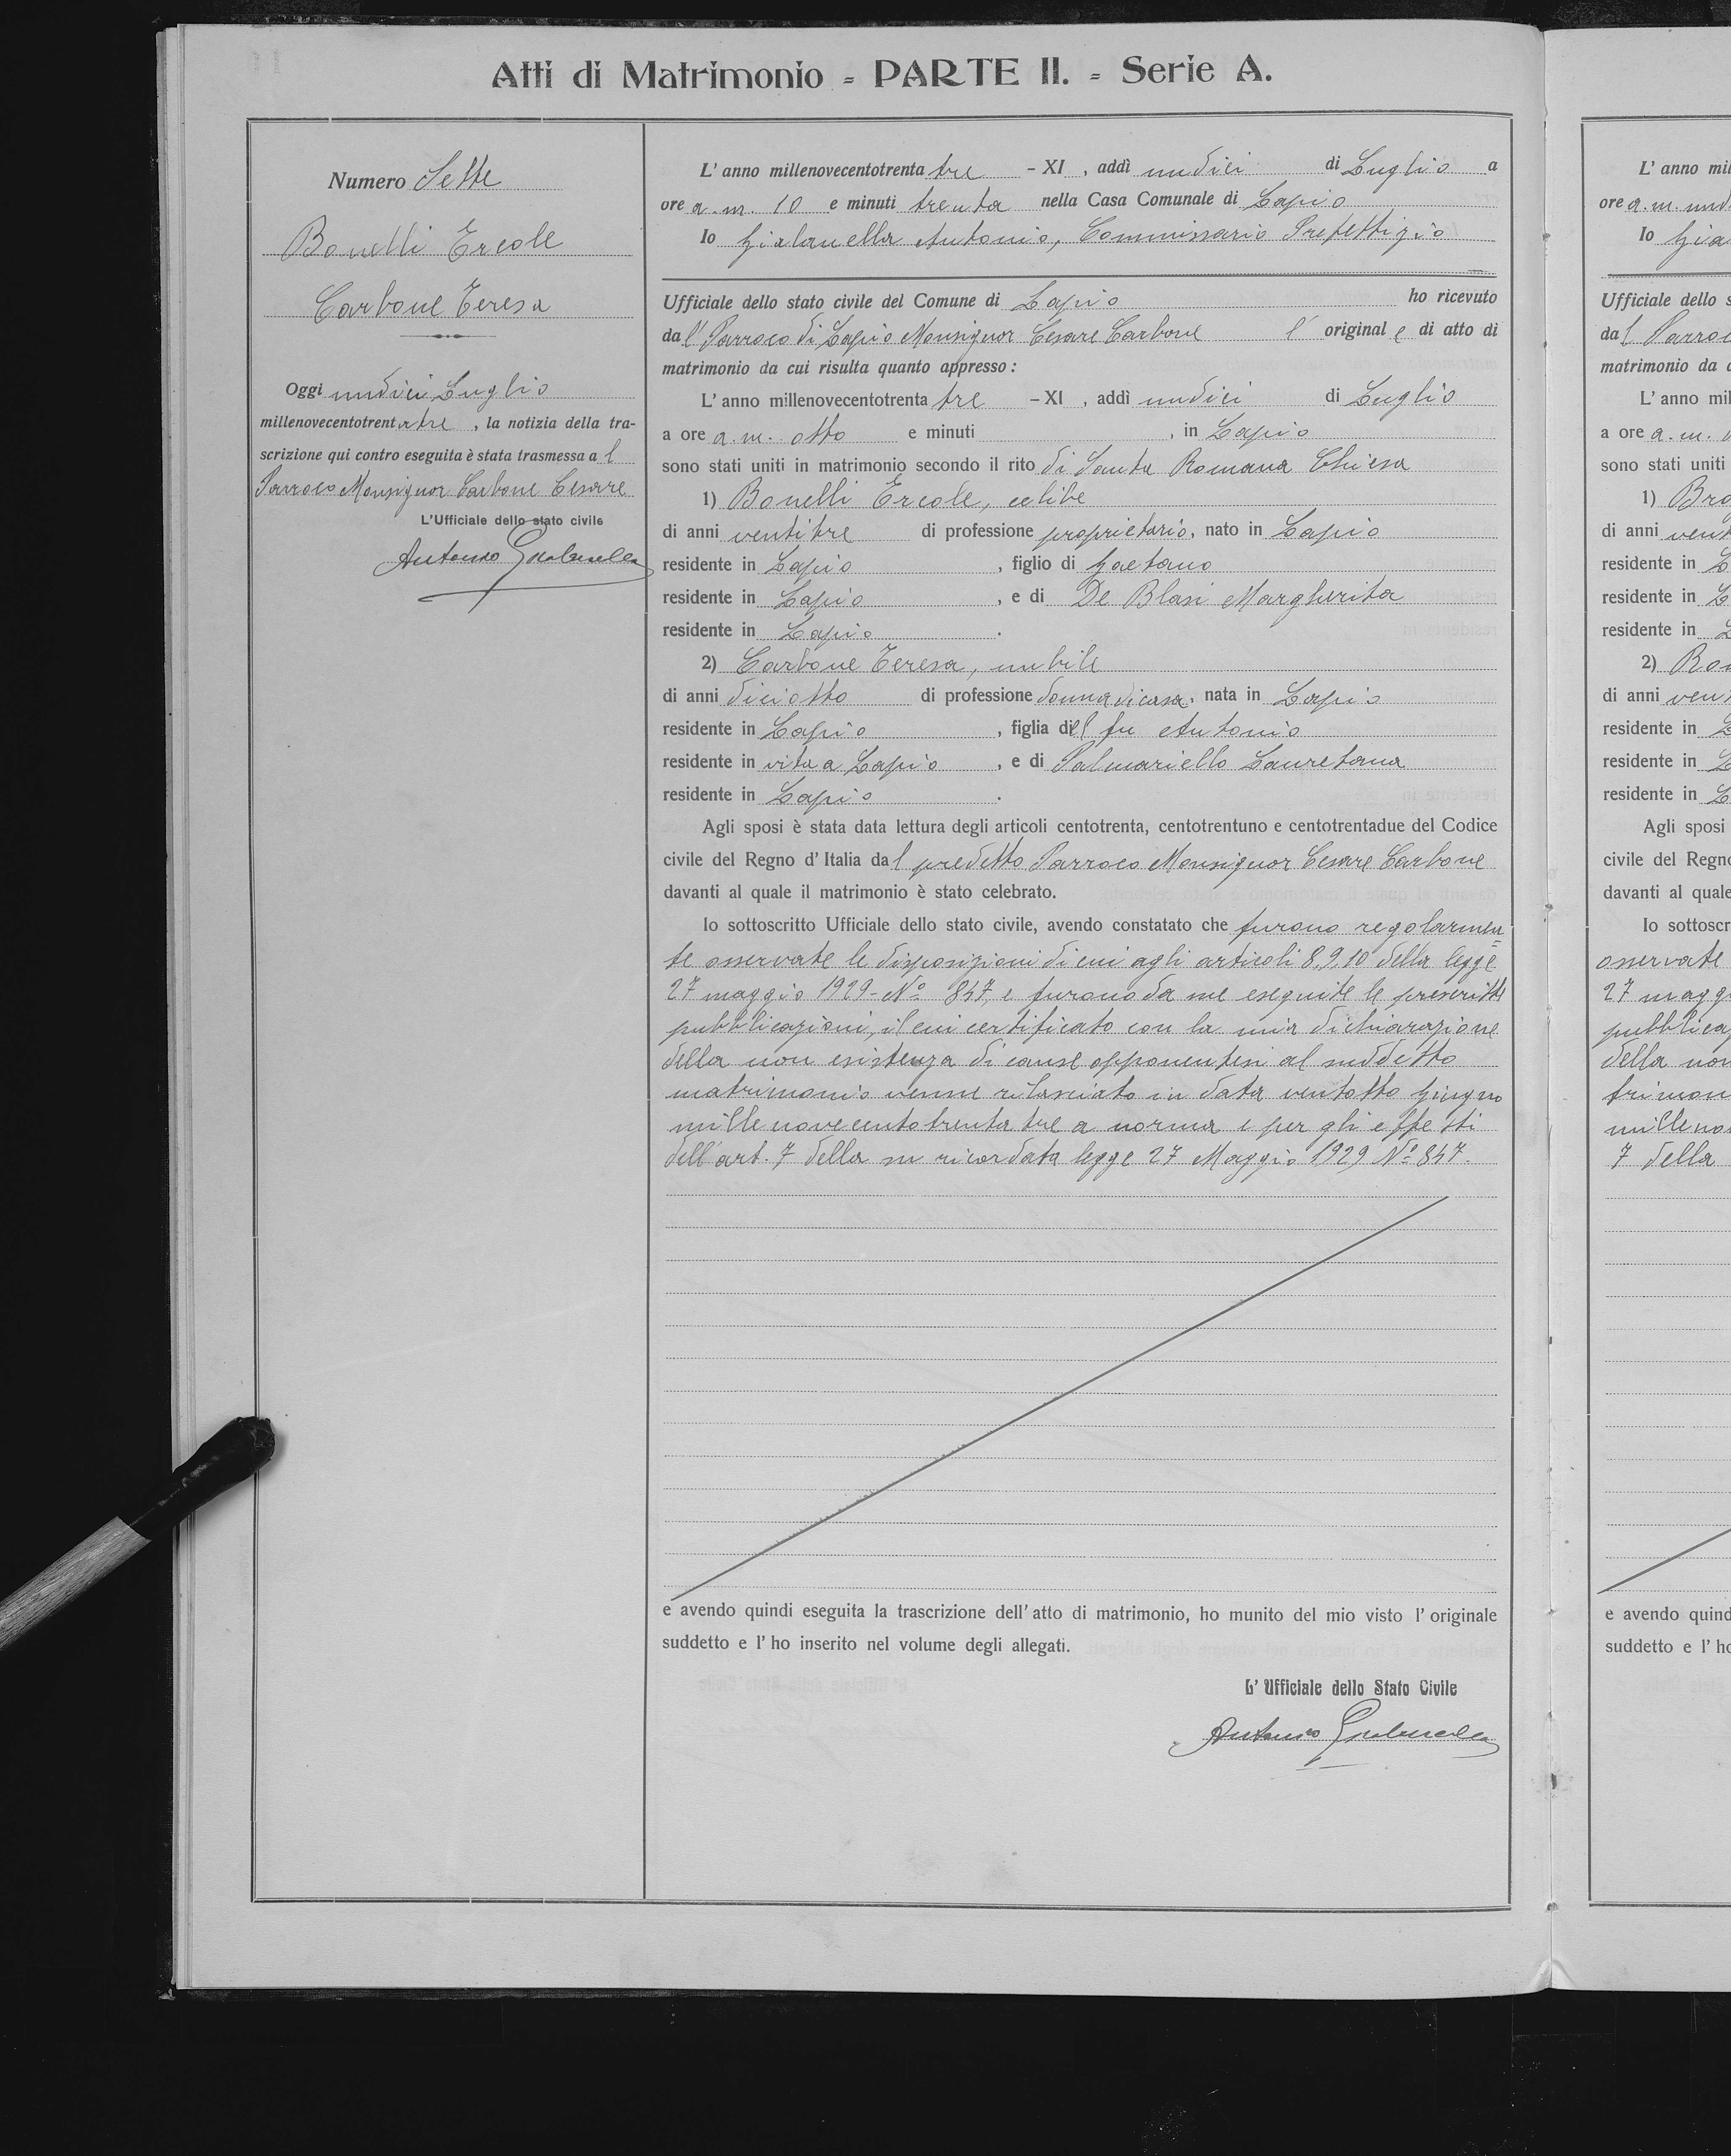 Atti di Matrimonio - PARTE II. - Serie A.
Numero Sette
Bonelli Ercole
Carbone Teresa
Oggi undici Luglio
millenovecentotrentatre, la notizia della tra-
scrizione qui contro eseguita è stata trasmessa al
Parroco Monsignor Carbone Cesare
L'Ufficiale dello stato civile
Antonio Gialanella
L' anno millenovecentotrenta tre - XI, addì undici di Luglio a
ore a.m. 10 e minuti trenta nella Casa Comunale di Lapio
Io Gialanella Antonio, Commissario Prefettizio
Ufficiale dello stato civile del Comune di Lapio ho ricevuto
dal Parroco di Lapio Monsignor Cesare Carbone l' originale di atto di
matrimonio da cui risulta quanto appresso:
L' anno millenovecentotrenta tre - XI, addì undici di Luglio
a ore a.m. otto e minuti , in Lapio
sono stati uniti in matrimonio secondo il rito di Santa Romana Chiesa
1) Bonelli Ercole, celibe
di anni ventitre di professione proprietario, nato in Lapio
residente in Lapio, figlio di Gaetano
residente in Lapio, e di De Blasi Margherita
residente in Lapio.
2) Carbone Teresa, nubile
di anni diciotto di professione donna di casa, nata in Lapio
residente in Lapio, figlia del fu Antonio
residente in vita a Lapio, e di Palmariello Lauretana
residente in Lapio.
Agli sposi è stata data lettura degli articoli centotrenta, centotrentuno e centotrentadue del Codice
civile del Regno d' Italia dal predetto Parroco Monsignor Cesare Carbone
davanti al quale il matrimonio è stato celebrato.
Io sottoscritto Ufficiale dello stato civile, avendo constatato che furono regolarmen=
te osservate le disposizioni di cui agli articoli 8, 9, 10 della legge
27 maggio 1929 - Nº 847, e furono da me eseguite le prescritte
pubblicazioni, il cui certificato con la mia dichiarazione
della non esistenza di cause opponentesi al suddetto
matrimonio venne rilasciato in data ventotto giugno
millenovecentotrentatre a norma e per gli effetti
dell'art. 7 della su ricordata legge 27 Maggio 1929 Nº 847.
e avendo quindi eseguita la trascrizione dell' atto di matrimonio, ho munito del mio visto l' originale
suddetto e l' ho inserito nel volume degli allegati.
L' Ufficiale dello Stato Civile
Antonio Gialanella
L' anno mil
ore a.m. und
Io Gia
Ufficiale dello s
dal Parroc
matrimonio da c
L' anno mil
a ore a.m.
sono stati uniti
1) Bro
di anni vent
residente in L
residente in L
residente in L
2) Ro
di anni vent
residente in L
residente in L
residente in L
Agli sposi
civile del Regno
davanti al quale
Io sottoscr
osservate
27 magg
pubblica
della non
trimon
milleno
7 della
e avendo quind
suddetto e l' ho